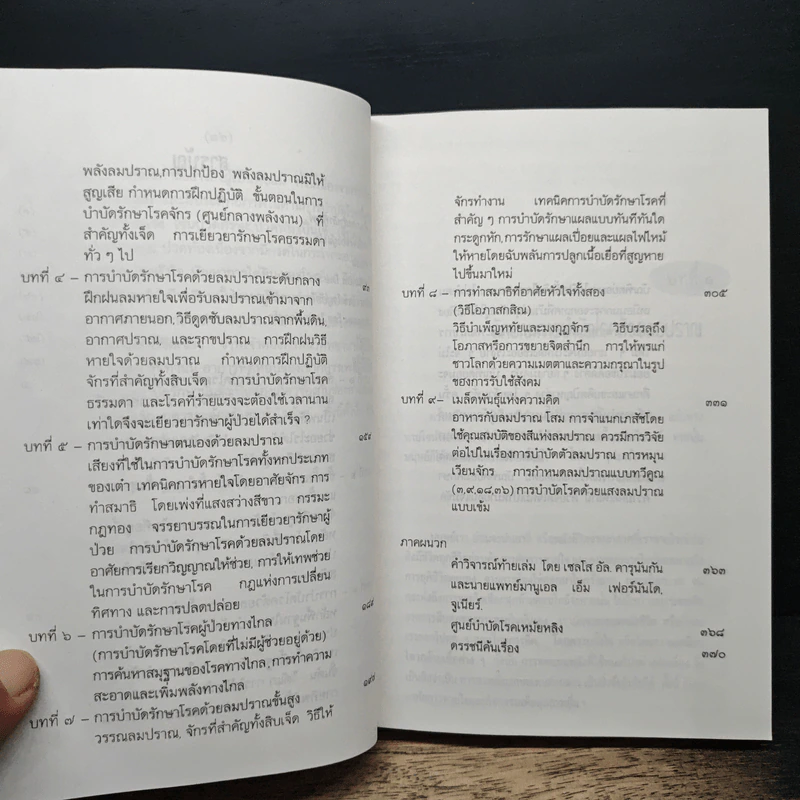 พลังลมปราณ,การปกป้อง พลังลมปราณมิให้
สูญเสีย กำหนดการฝึกปฏิบัติ ขั้นตอนในการ
บำบัดรักษาโรคจักร (ศูนย์กลางพลังงาน) ที่
สำคัญทั้งเจ็ด การเยียวยารักษาโรคธรรมดา
ทั่ว ๆ ไป
บทที่ ๔ – การบำบัดรักษาโรคด้วยลมปราณระดับกลาง
ฝึกฝนลมหายใจเพื่อรับลมปราณเข้ามาจาก
อากาศภายนอก,วิธีดูดซับลมปราณจากพื้นดิน,
อากาศปราณ, และรุกขปราณ การฝึกฝนวิธี
หายใจด้วยลมปราณ กำหนดการฝึกปฏิบัติ
จักรที่สำคัญทั้งสิบเจ็ด การบำบัดรักษาโรค
ธรรมดา และโรคที่ร้ายแรงจะต้องใช้เวลานาน
เท่าใดจึงจะเยียวยารักษาผู้ป่วยได้สำเร็จ ?
บทที่ ๕ – การบำบัดรักษาตนเองด้วยลมปราณ ๑๕๔
เสียงที่ใช้ในการบำบัดรักษาโรคทั้งหกประเภท
ของเต๋า เทคนิคการหายใจโดยอาศัยจักร การ
ทำสมาธิ โดยเพ่งที่แสงสว่างสีขาว กรรมะ
กฎทอง จรรยาบรรณในการเยียวยารักษาผู้
ป่วย การบำบัดรักษาโรคด้วยลมปราณโดย
อาศัยการเรียกวิญญาณให้ช่วย, การให้เทพช่วย
ในการบำบัดรักษาโรค กฎแห่งการเปลี่ยน
ทิศทาง และการปลดปล่อย
บทที่ ๖ – การบำบัดรักษาโรคผู้ป่วยทางไกล ๑๘๔
(การบำบัดรักษาโรคโดยที่ไม่มีผู้ช่วยอยู่ด้วย)
การค้นหาสมุฐานของโรคทางไกล,การทำความ
สะอาดและเพิ่มพลังทางไกล
บทที่ ๗ – การบำบัดรักษาโรคด้วยลมปราณขั้นสูง
วรรณลมปราณ, จักรที่สำคัญทั้งสิบเจ็ด วิธีให้
จักรทำงาน เทคนิคการบำบัดรักษาโรคที่
สำคัญ ๆ การบำบัดรักษาแผลแบบทันทีทันใด
กระดูกหัก,การรักษาแผลเปื่อยและแผลไฟไหม้
ให้หายโดยฉับพลันการปลูกเนื้อเยื่อที่สูญหาย
ไปขึ้นมาใหม่
บทที่ ๘ – การทำสมาธิที่อาศัยหัวใจทั้งสอง ๓๐๕
(วิธีโอภาสกสิณ)
วิธีบำเพ็ญหทัยและมงกุฎจักร วิธีบรรลุถึง
โอภาสหรือการขยายจิตสำนึก การให้พรแก่
ชาวโลกด้วยความเมตตาและความกรุณาในรูป
ของการรับใช้สังคม
บทที่ ๙– เมล็ดพันธุ์แห่งความคิด ๓๓๑
อาหารกับลมปราณ โสม การจำแนกเภสัชโดย
ใช้คุณสมบัติของสีแห่งลมปราณ ควรมีการวิจัย
ต่อไปในเรื่องการบำบัดตัวลมปราณ การหมุน
เวียนจักร การกำหนดลมปราณแบบทวีคูณ
(๓,๙,๑๘,๓๖) การบำบัดโรคด้วยแสงลมปราณ
แบบเข้ม
ภาคผนวก
คำวิจารณ์ท้ายเล่ม โดย เซลโส อัล. คารุนันกัน ๓๖๓
และนายแพทย์มานูเอล เอ็ม เฟอร์นันโด,
จูเนียร์.
ศูนย์บำบัดโรคเหมัยหลิง ๓๖๘
ดรรชนีค้นเรื่อง ๓๗๐